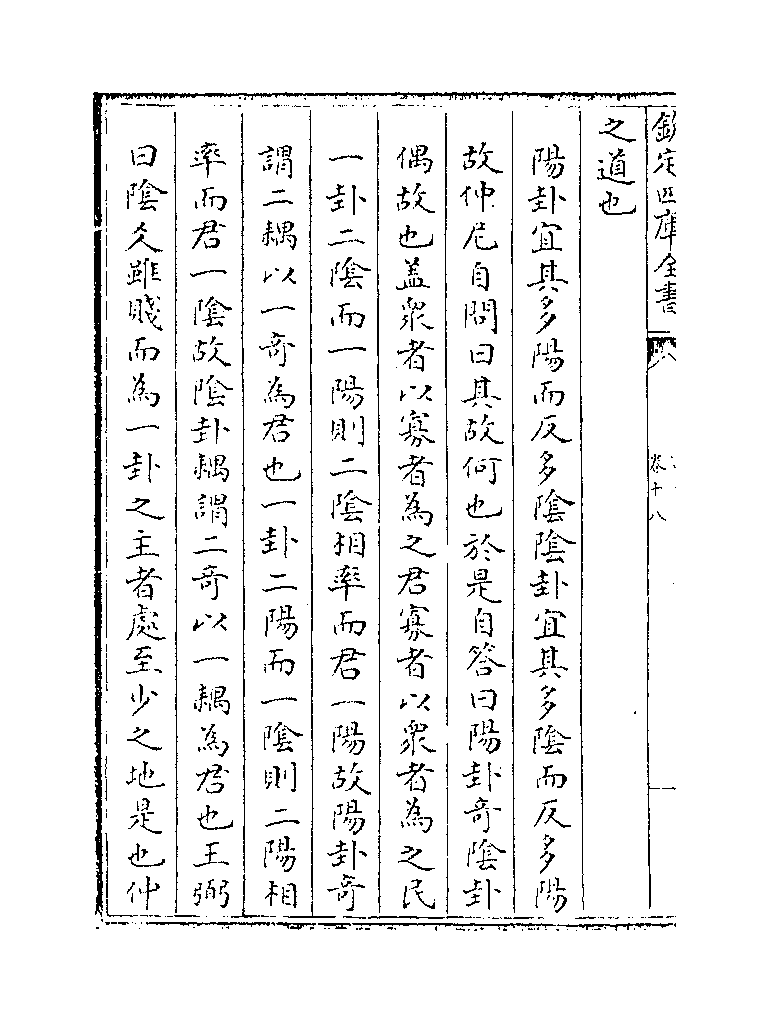 欽定四庫全書
卷十八
之道也
陽卦宜其多陽而反多陰陰卦宜其多陰而反多陽
故仲尼自問曰其故何也於是自答曰陽卦奇陰卦
偶故也蓋衆者以寡者為之君寡者以衆者為之民
一卦二陰而一陽則二陰相率而君一陽故陽卦奇
謂二耦以一奇為君也一卦二陽而一陰則二陽相
率而君一陰故陰卦耦謂二奇以一耦為君也王弼
曰陰爻雖賤而為一卦之主者處至少之地是也仲